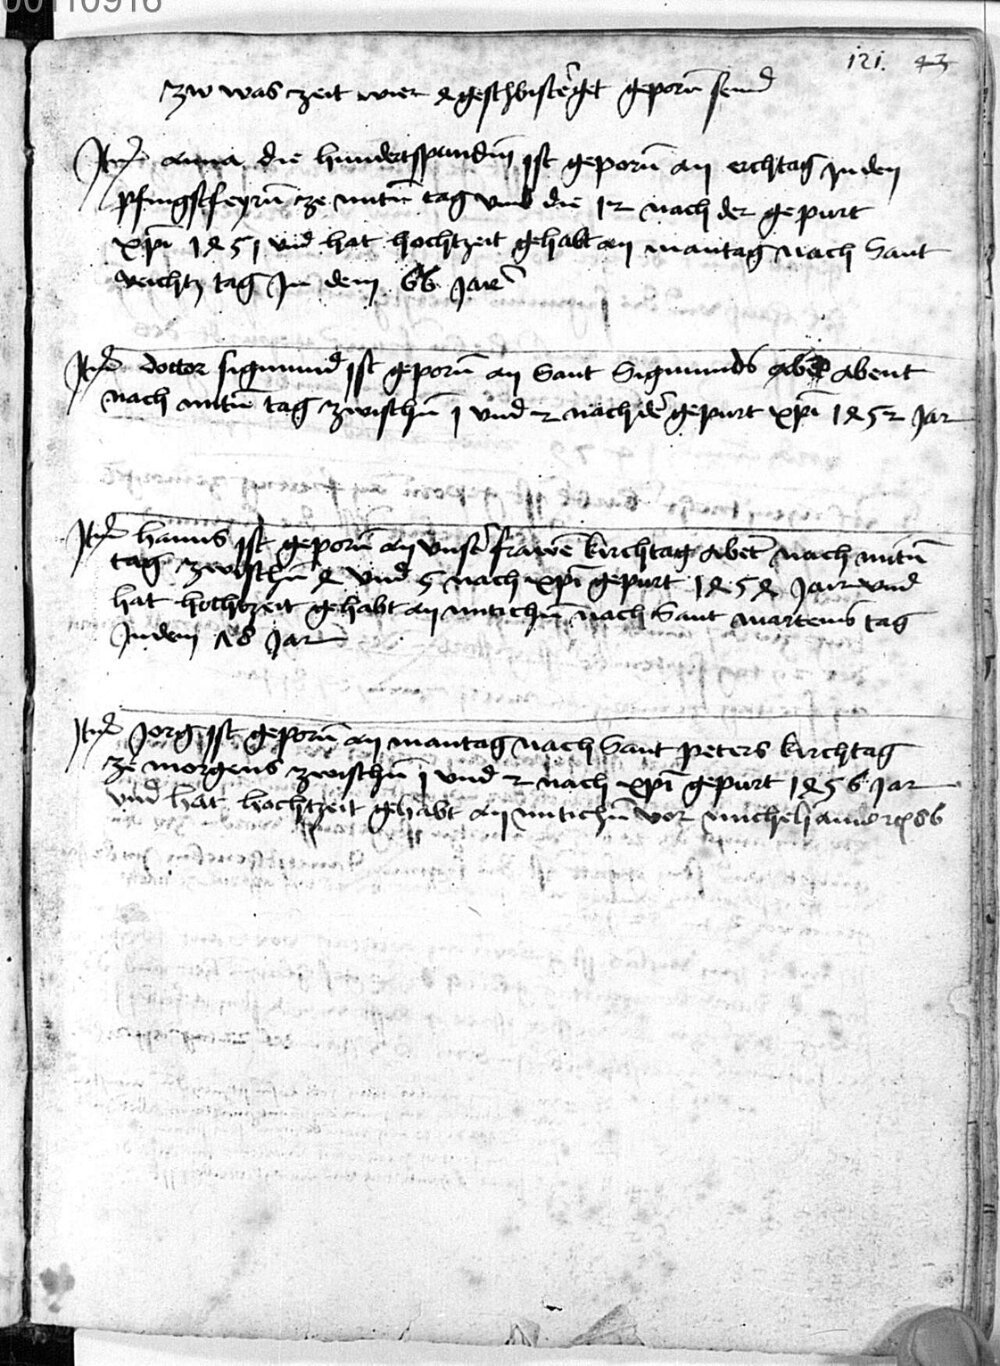 00110916
121. 43
zw was zeit wier 4 geschbisterget geporn send
Item anna die hundertspundin ist geporn an erchtag In den
pfingstfeyrn ze mittn tag vmb die 12 nach der gepurt
xpi 1451 vnd hat hochtzeit gehabt an mantag nach Sant
veichtz tag In dem 66 Jar
Item doctor sigmund ist geporn an Sant Sigmunds abent
nach mitten tag zwischn 1 vnd 2 nach der gepurt xpi 1452 Jar
Item hanns ist geporn an vnser frawen kirchtag abent nach mittn
tag zwischn 4 vnd 5 nach xpi gepurt 1454 Jar vnd
hat hochtzeit gehabt an mitichn nach Sant marteins tag
In dem 78 Jar
Item Jorg ist geporn an mantag nach Sant peters kirchtag
ze morgens zwischn 1 vnd 2 nach xpi gepurt 1456 Jar
vnd hat hochtzeit gehabt an mitichn vor michely anno 86